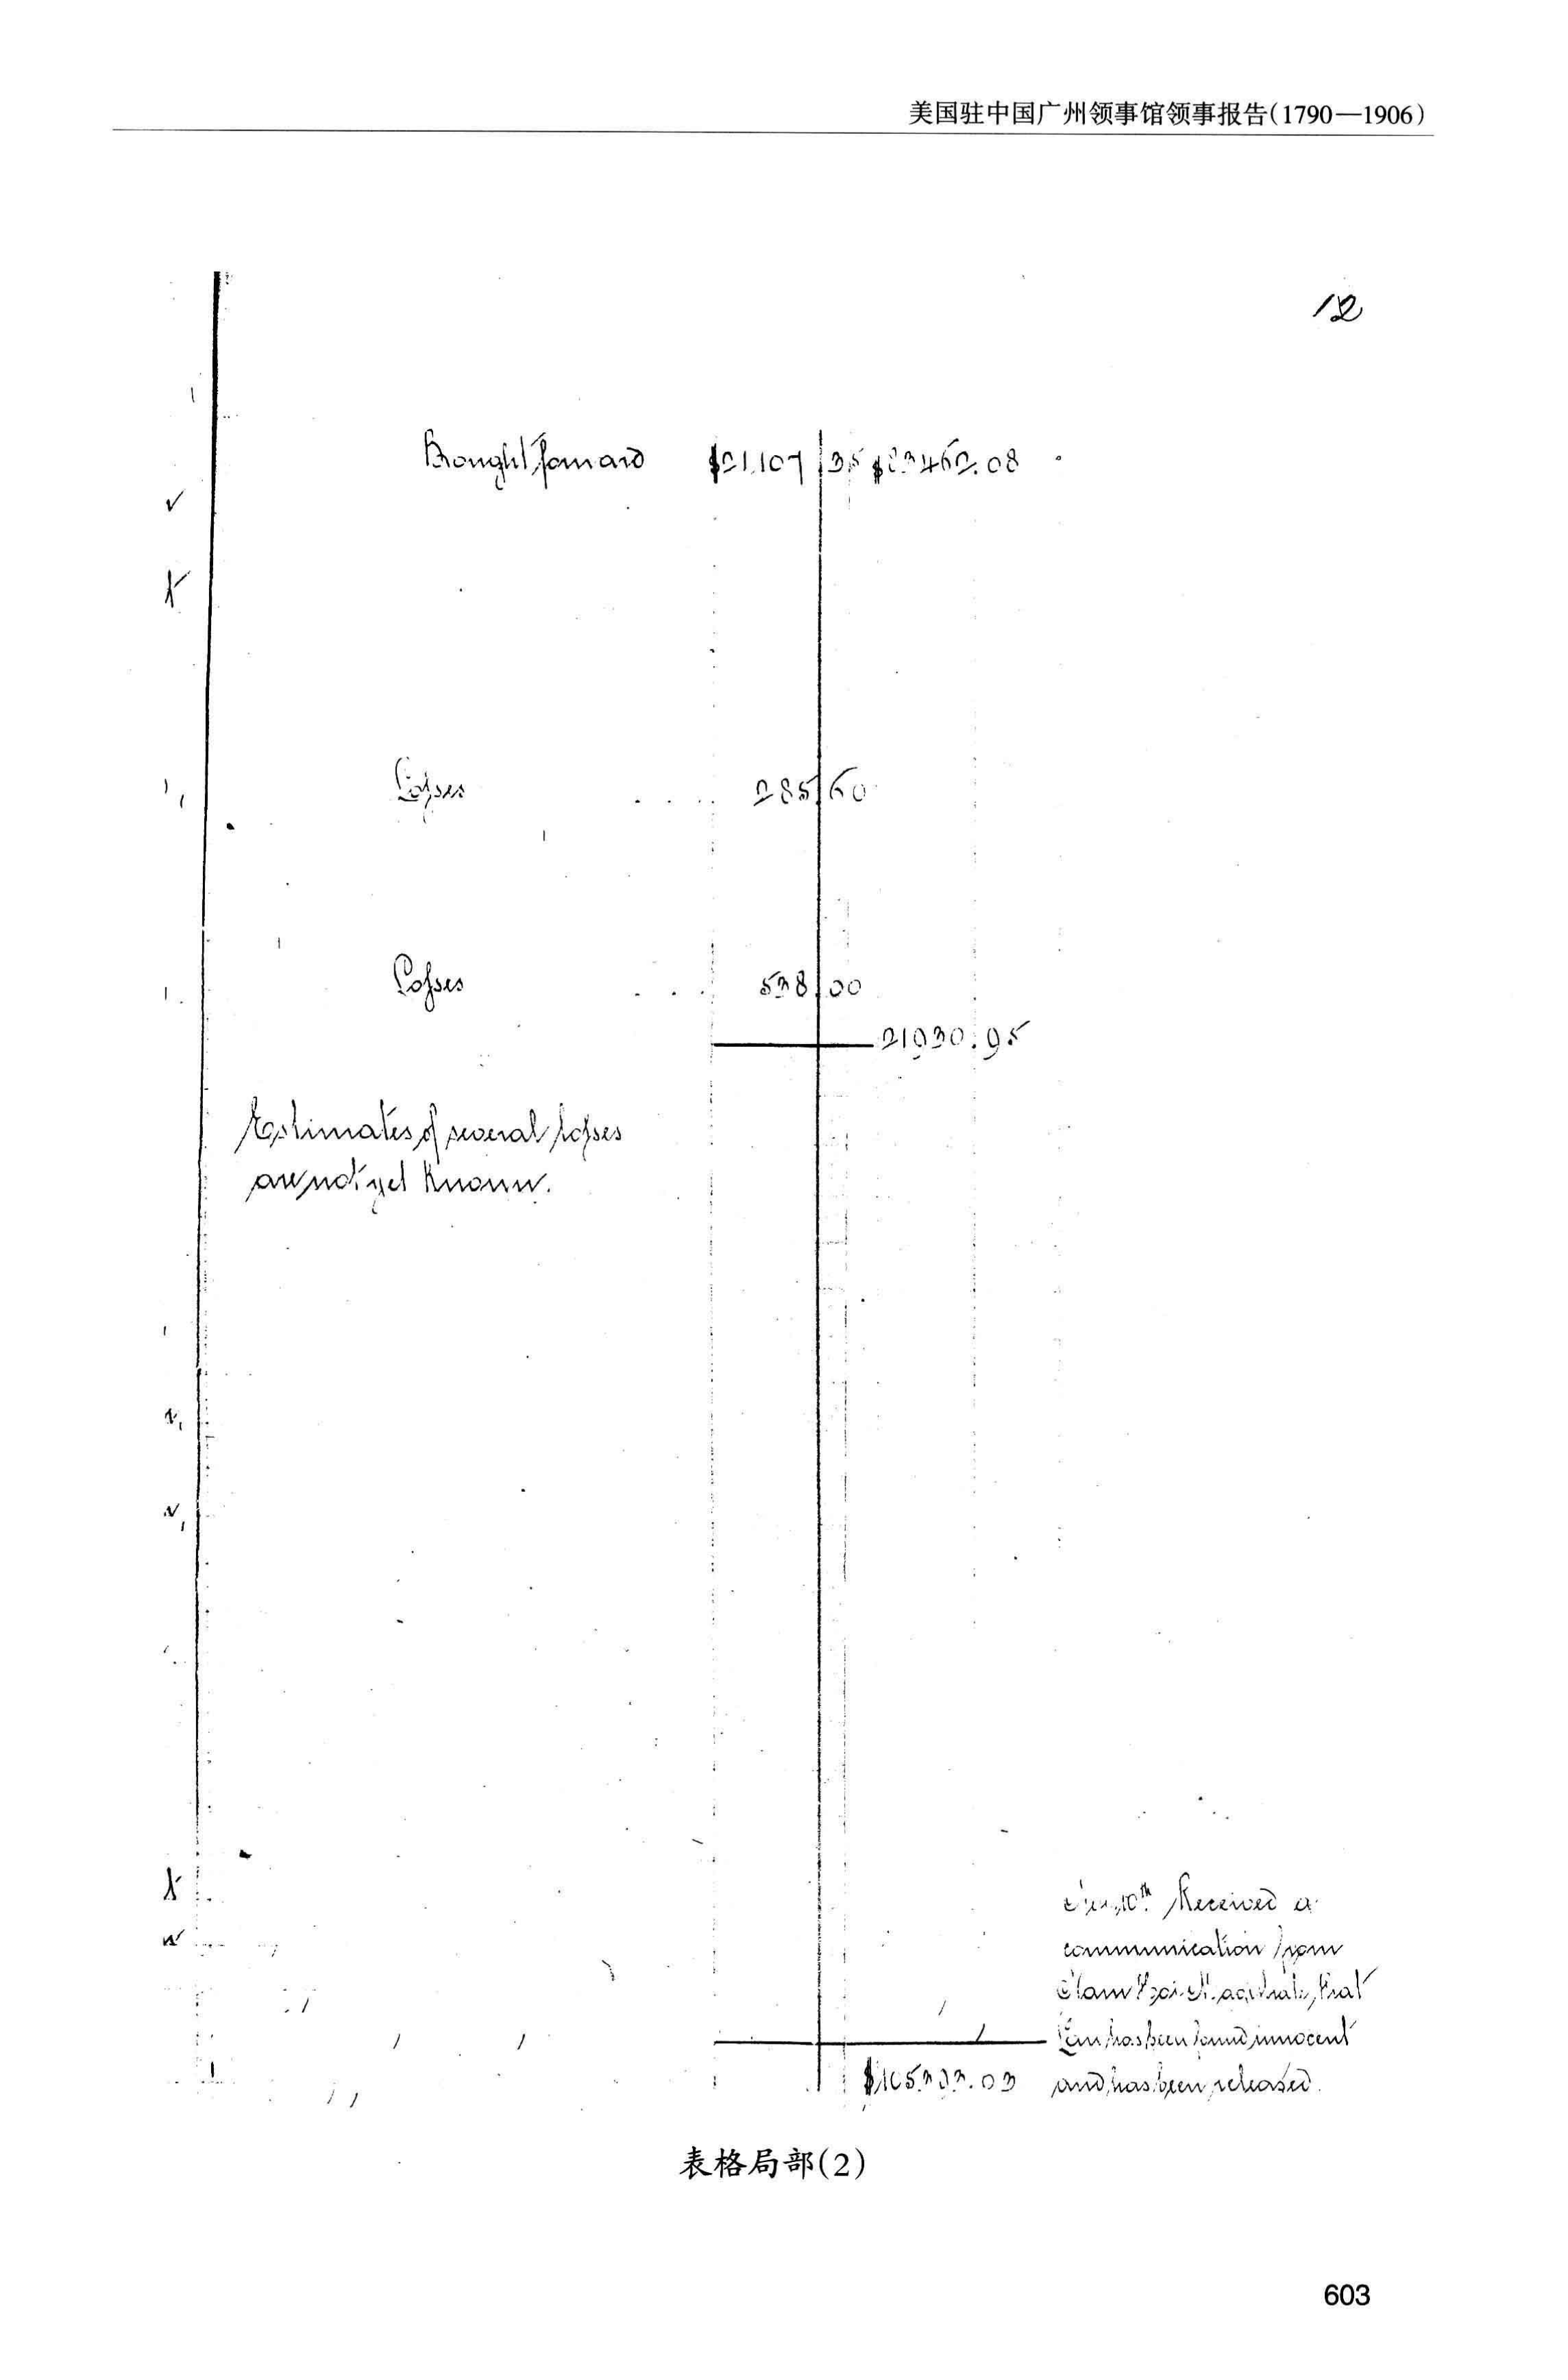 美国驻中国广州领事馆领事报告(1790—1906)
12
Brought forward $21,107 35 $83462.08
Losses .... 285 60
Losses .... 538 00
21930.95
Estimates of several losses
are not yet known.
10th. Received a
communication from
Magistrate, that
has been found innocent
$105393.03 and has been released.
表格局部(2)
603